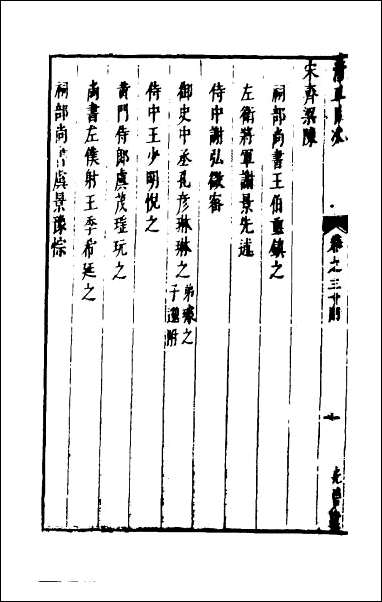 宋齊梁陳
祠部尚書王伯重鎮之
左衛將軍謝景先述
侍中謝弘微密
御史中丞孔彦琳琳之 弟璩之 子邈附
侍中王少明悅之
黄門侍郎虞茂瑶玩之
尚書左僕射王季布延之
祠部尚書虞景豫悰
卷之三